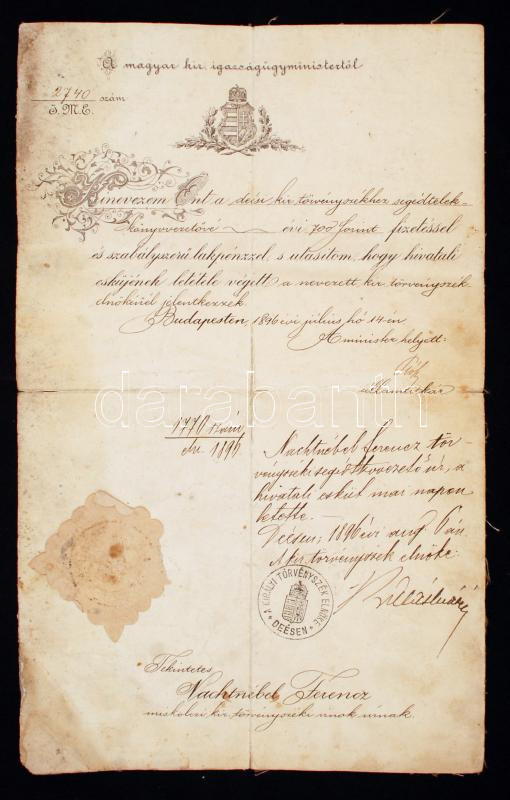 A magyar kir. igazságügyministertől
2740 szám
I.M.E.
Kinevezem Önt a deési kir. törvényszékhez segédtelek-
könyvvezetővé évi 700 forint fizetéssel
és szabályszerű lakpénzzel, s utasítom, hogy hivatali
esküjének letétele végett a nevezett kir. törvényszék
elnökénél jelentkezzék.
Budapesten, 1896 évi július hó 14-én
A minister helyett:
államtitkár
1770 szám
eln. 1896
Nachtnébel Ferencz tör-
vényszéki segédtkvvezető úr, a
hivatali esküt mai napon
letette.
Deésen, 1896 évi aug 6án
A kir. törvényszék elnöke:
A KIRÁLYI TÖRVÉNYSZÉK ELNÖKE
DEÉSEN
Tekintetes
Nachtnébel Ferencz
miskolczi kir. törvényszéki irnok úrnak.
darabanth